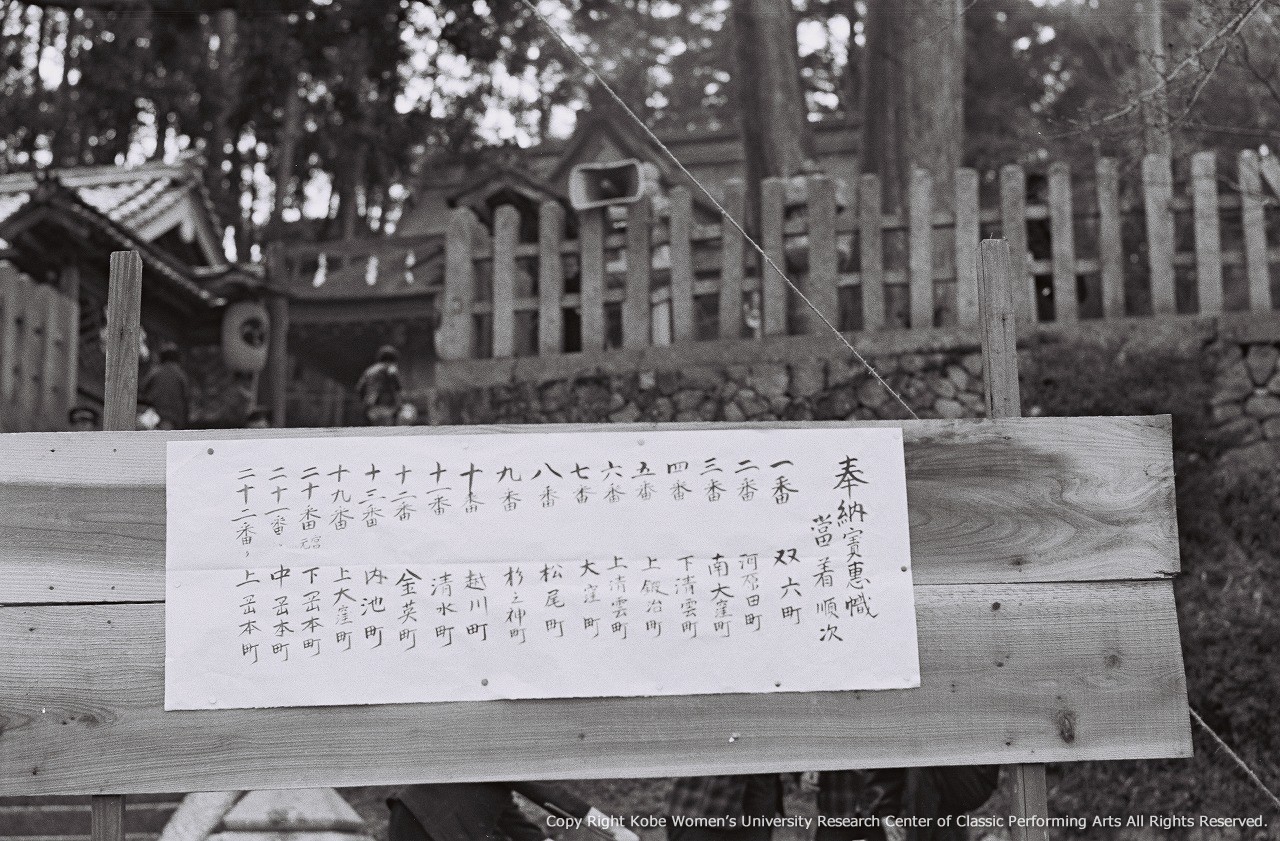 奉納寳恵幟
當着順次
一番 双六町
二番 河原田町
三番 南大窪町
四番 下清雲町
五番 上鍛治町
六番 上清雲町
七番 大窪町
八番 松尾町
九番 杉之神町
十番 越川町
十一番 清水町
十二番 金英町
十三番 内池町
十九番 上大窪町
二十番 宮元 下岡本町
二十一番〃 中岡本町
二十二番〃 上岡本町
Copy Right Kobe Women's University Research Center of Classic Performing Arts All Rights Reserved.